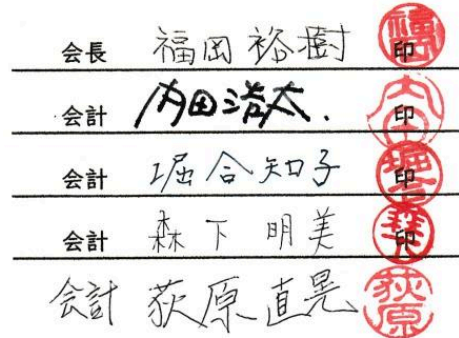 会長 福岡裕樹 印
会計 内田浩太. 印
会計 堀合知子 印
会計 森下明美 印
会計 荻原直晃 荻原